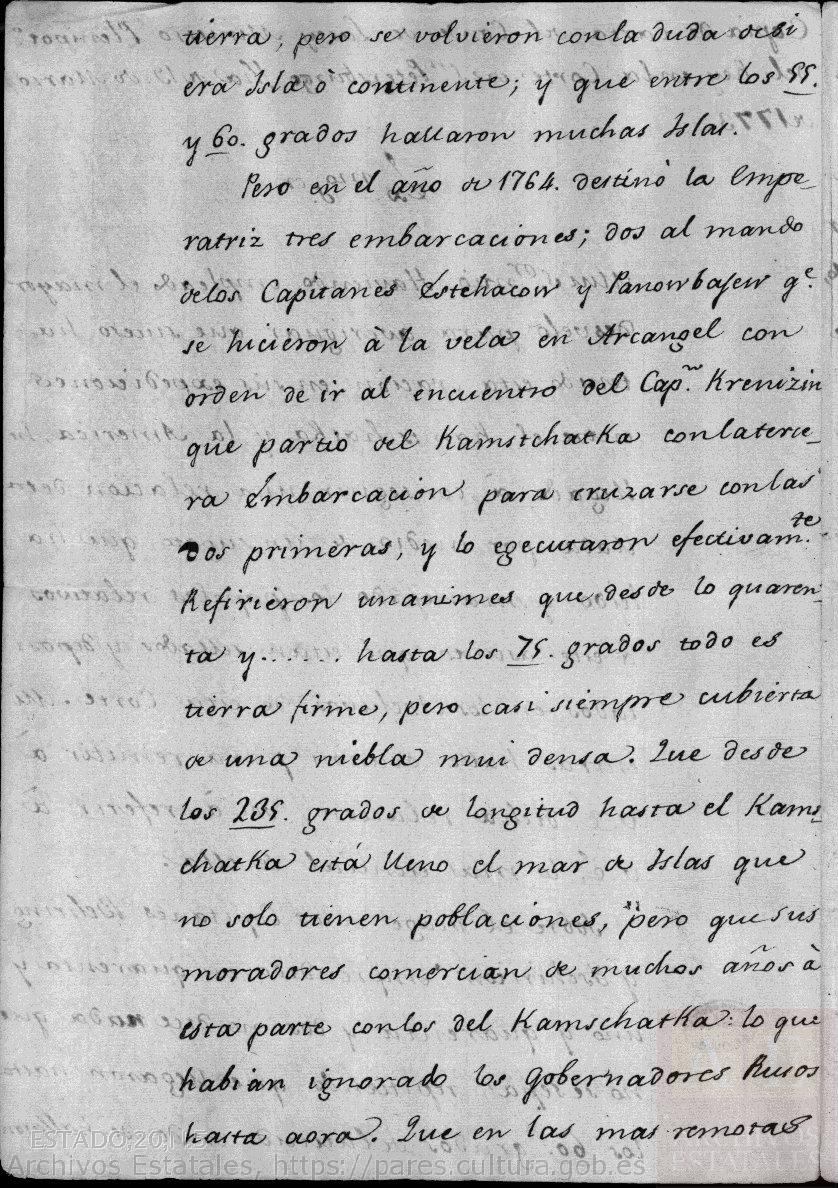 tierra, pero se volvieron con la duda de si
era Isla ò continente; y que entre los 55.
y 60. grados hallaron muchas Islas.
Pero en el año de 1764. destinò la Empe-
ratriz tres embarcaciones; dos al mando
delos Capitanes Estchacow y Panowbasew qe.
se hicieron a la vela en Arcangel con
orden de ir al encuentro del Capn. Krenizin
que partio del Kamstchatka con la terce-
ra Embarcacion para cruzarse con las
dos primeras, y lo egecutaron efectivamte.
Refirieron unanimes que, desde lo quaren-
ta y....... hasta los 75. grados todo es
tierra firme, pero casi siempre cubierta
de una niebla mui densa. Que desde
los 235. grados de longitud hasta el Kams-
chatka está lleno el mar de Islas que
no solo tienen poblaciones, pero que sus
moradores comercian de muchos años à
esta parte conlos del Kamschatka: lo que
habian ignorado los Gobernadores Rusos
hasta aora. Que en las mas remotas
ESTADO,20,N.
Archivos Estatales, https://pares.cultura.gob.es